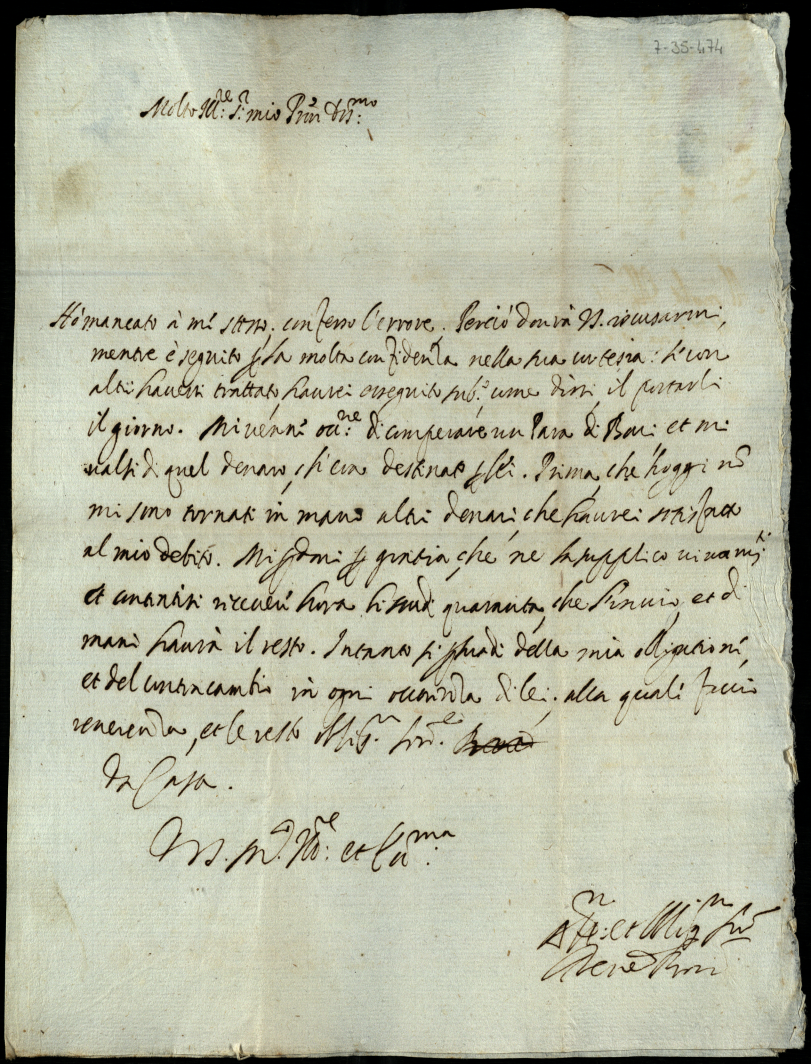 7-35-474
Molto Ill:re S:r mio Pron Oss:mo
Hò mancato à me stesso, confesso l'errore. Perciò dovrà VS. iscusarmi,
mentre è seguito p la molta confidenza nella sua cortesia: se con
altri havessi trattato haurei esseguito sub.o come dissi, il portarli
il giorno. Mi venne occ:ne di comperare un Para di Bovi et mi
valsi di quel denaro, ch'era destinato p lei. Prima, che hoggi nõ
mi sono tornati in mano altri denari, che haurei sodisfatto
al mio debito. Mi pdoni p gratia, che ne la supplico vivam:te
et contentisi ricever hora li scudi quaranta, che l'invio, et di
mani haurà il resto. Intanto si psuadi della mia obligatione,
et del contracambio in ogni occorenza di lei, alla quale faccio
reverenza, et le resto Oblig.mo Ser.e
Da Casa.
Di VS. m.to Ill:re et Ecc:ma
Aff:mo et Oblig:mo Ser.re